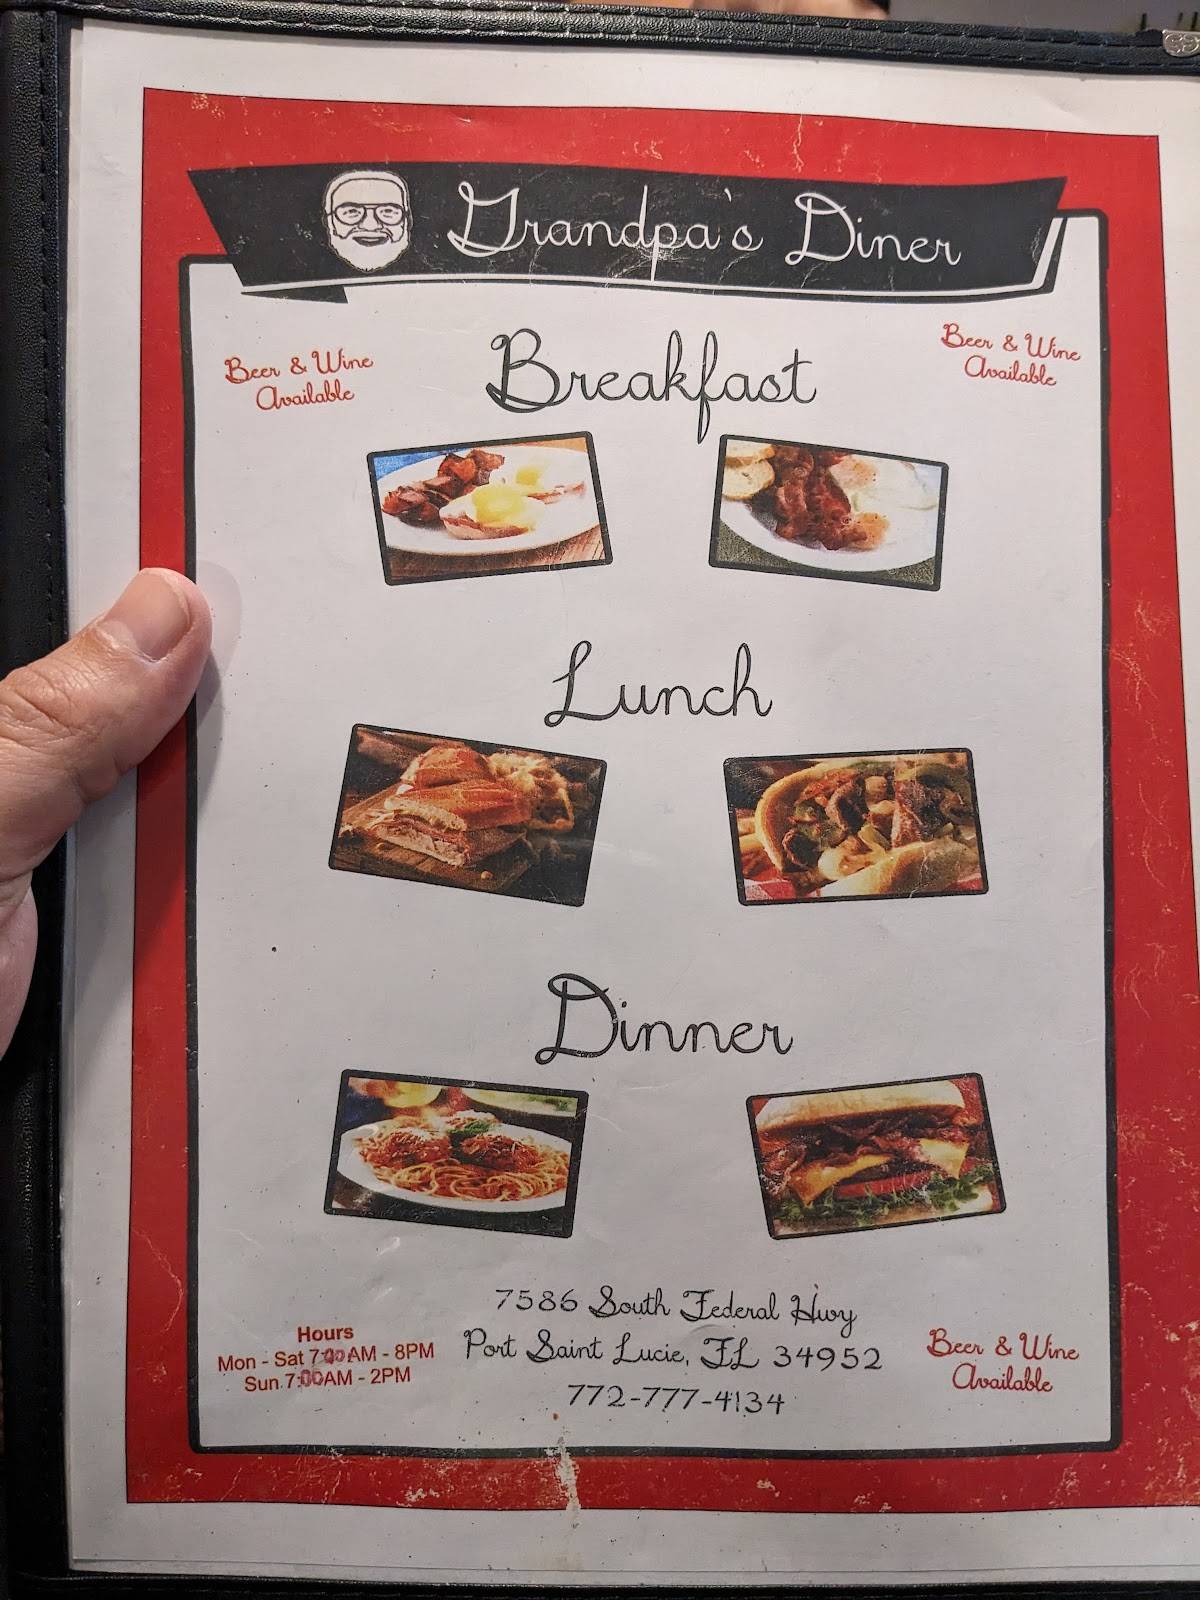 Grandpa's Diner
Beer & Wine
Available
Breakfast
Beer & Wine
Available
Lunch
Dinner
7586 South Federal Hwy
Port Saint Lucie, FL 34952
772-777-4134
Hours
Mon - Sat 7:00AM - 8PM
Sun 7:00AM - 2PM
Beer & Wine
Available